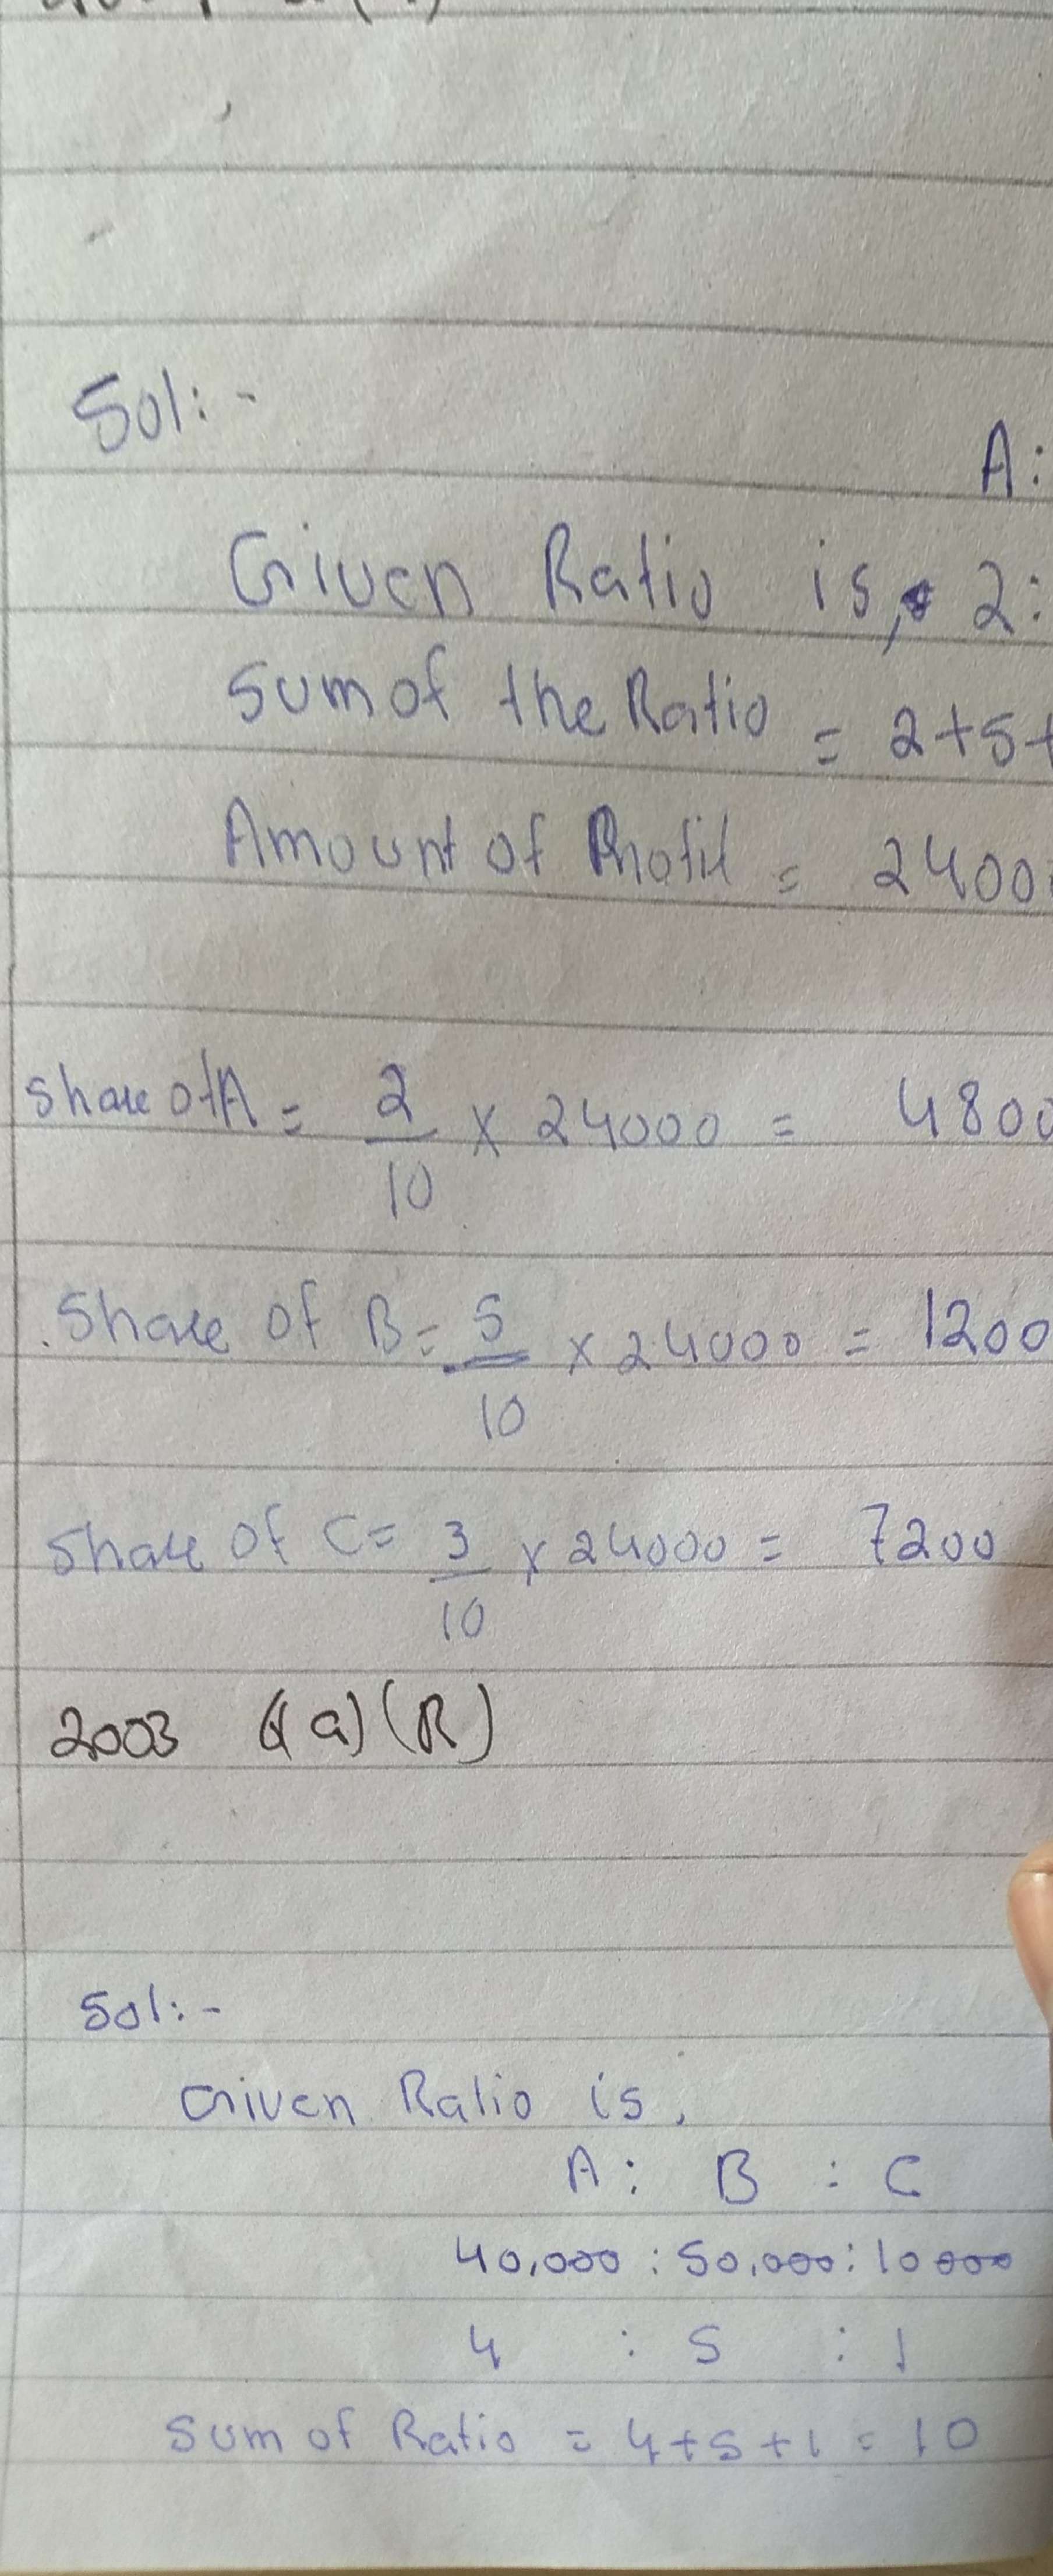 Sol:-
A:
Given Ratio is, 2:
Sum of the Ratio = 2+5+
Amount of Profit = 2400
Share of A = 2/10 x 24000 = 4800
Share of B = 5/10 x 24000 = 1200
Share of C = 3/10 x 24000 = 7200
2003 (a) (R)
Sol:-
Given Ratio is,
A: B : C
40,000 : 50,000 : 10000
4 : 5 : 1
Sum of Ratio = 4+5+1 = 10